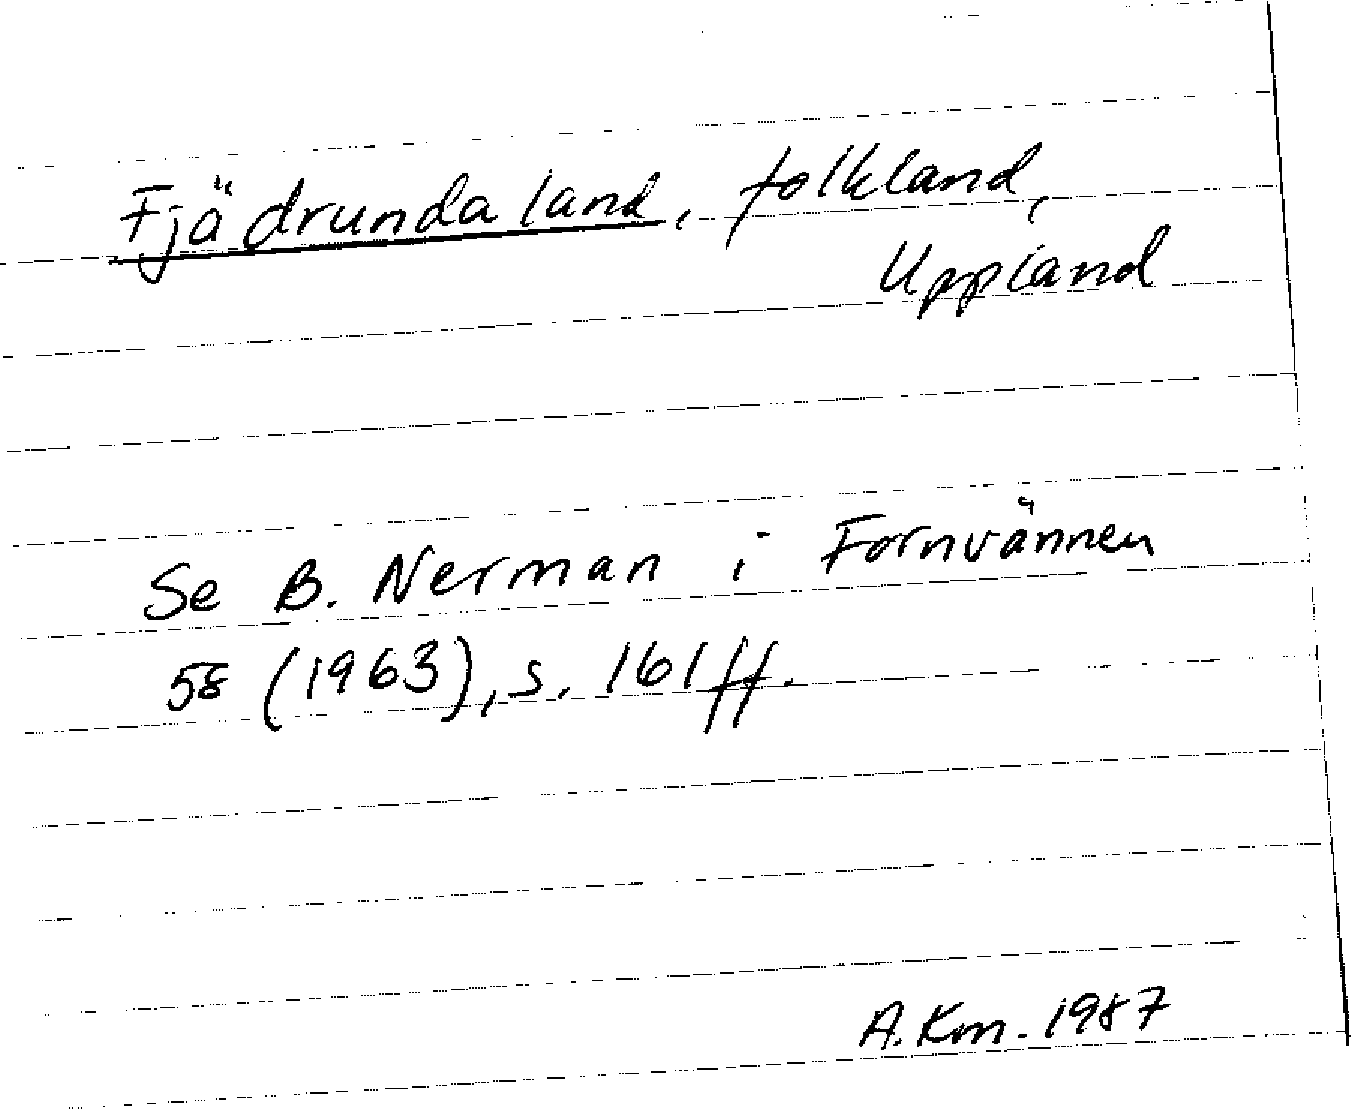 Fjädrundaland, folkland,
Uppland
Se B. Nerman i Fornvännen
58 (1963), s. 161 ff.
A. Km. 1987